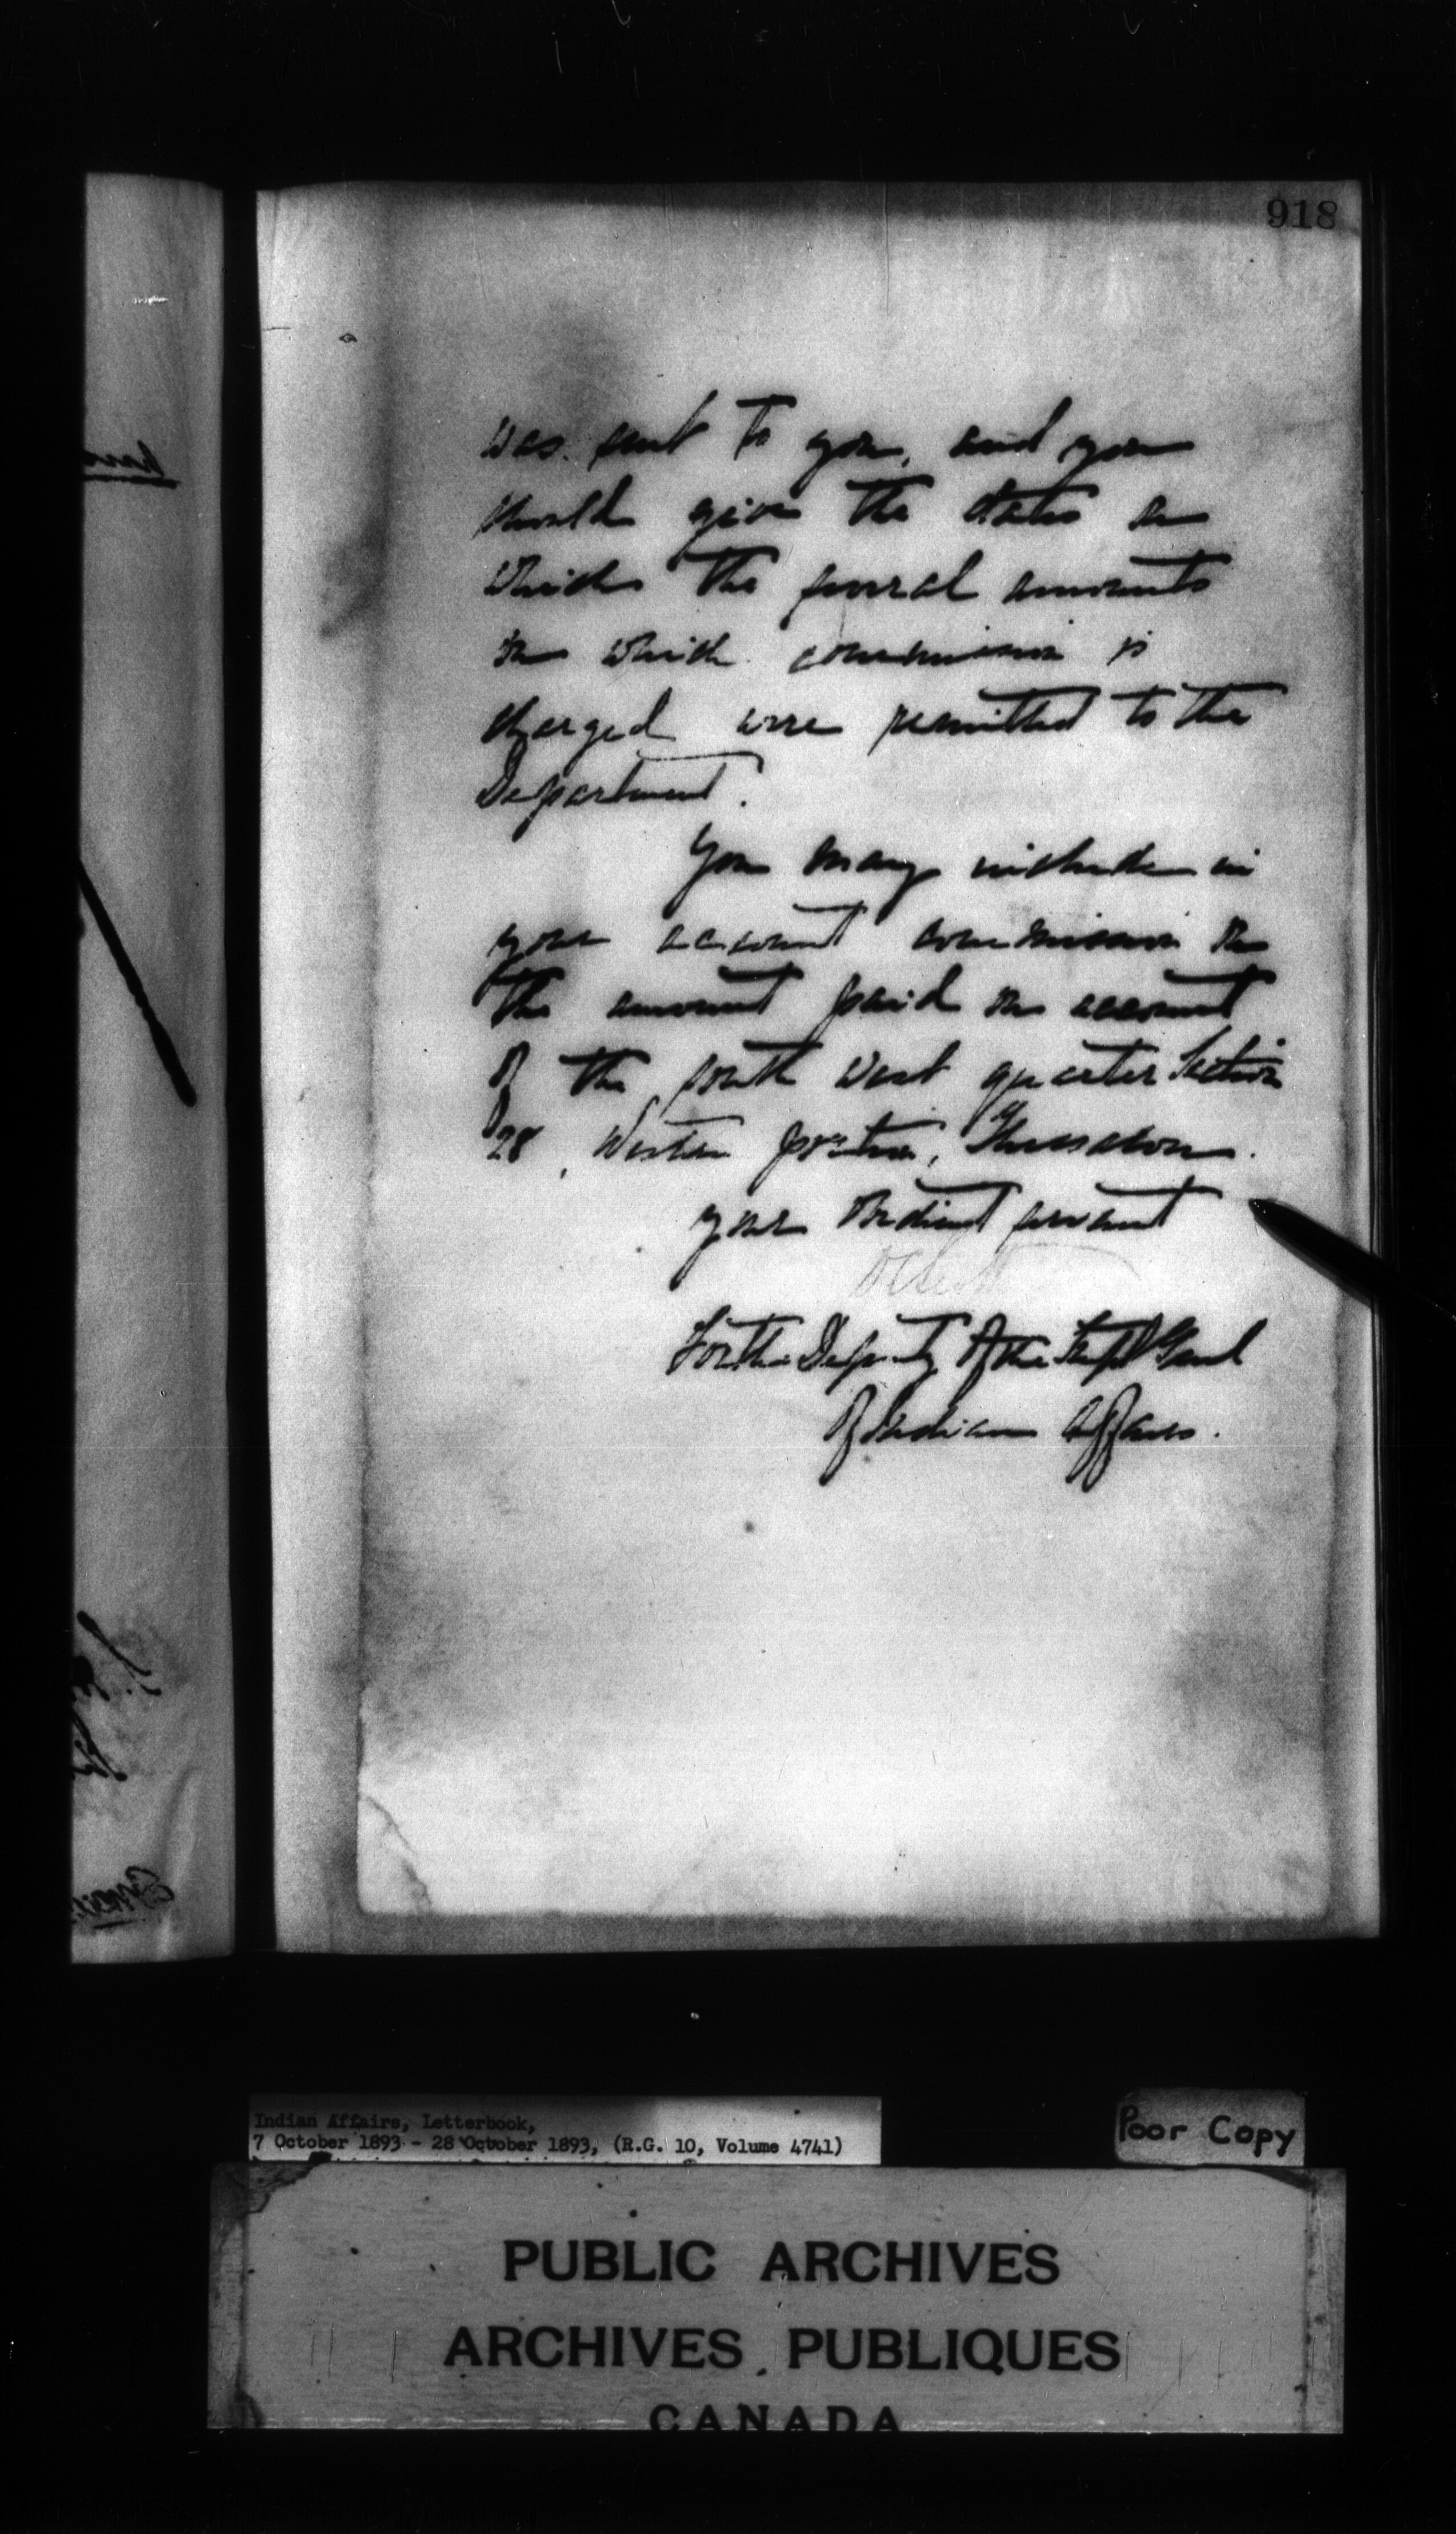 918
was sent to you, and you
should give the dates on
which the several amounts
on which commission is
charged were remitted to the
Department.
You may include in
your account commission on
the amount paid on account
of the south west quarter Section
28, Western portion, Thessalon.
your obedient servant
For the Deputy of the Supt Genl
of Indian Affairs.
Indian Affairs, Letterbook,
7 October 1893 - 28 October 1893, (R.G. 10, Volume 4741)
Poor Copy
PUBLIC ARCHIVES
ARCHIVES PUBLIQUES
CANADA